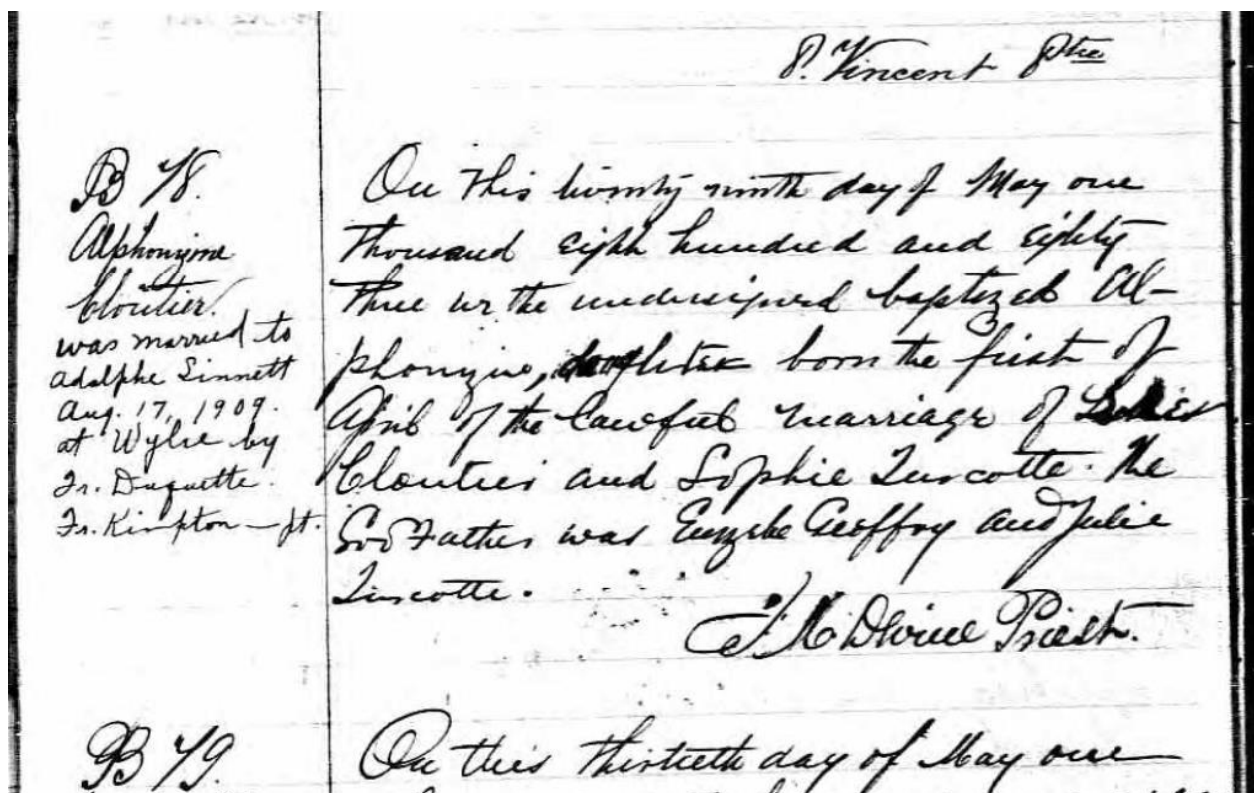 P. Vincent Ptre
B 78.
Alphonzine
Cloutier.
was married to
Adolphe Sinnett
Aug. 17, 1909.
at Wylie by
Fr. Duquette.
Fr. Kimpton — pt.
On this twenty ninth day of May one
thousand eight hundred and eighty
three we the undersigned baptized Al-
phonzine, daughter born the first of
April of the lawful marriage of
Cloutier and Sophie Turcotte. The
God Father was Geoffroy and Julie
Turcotte.
Priest.
B 79.
On this thirtieth day of May one